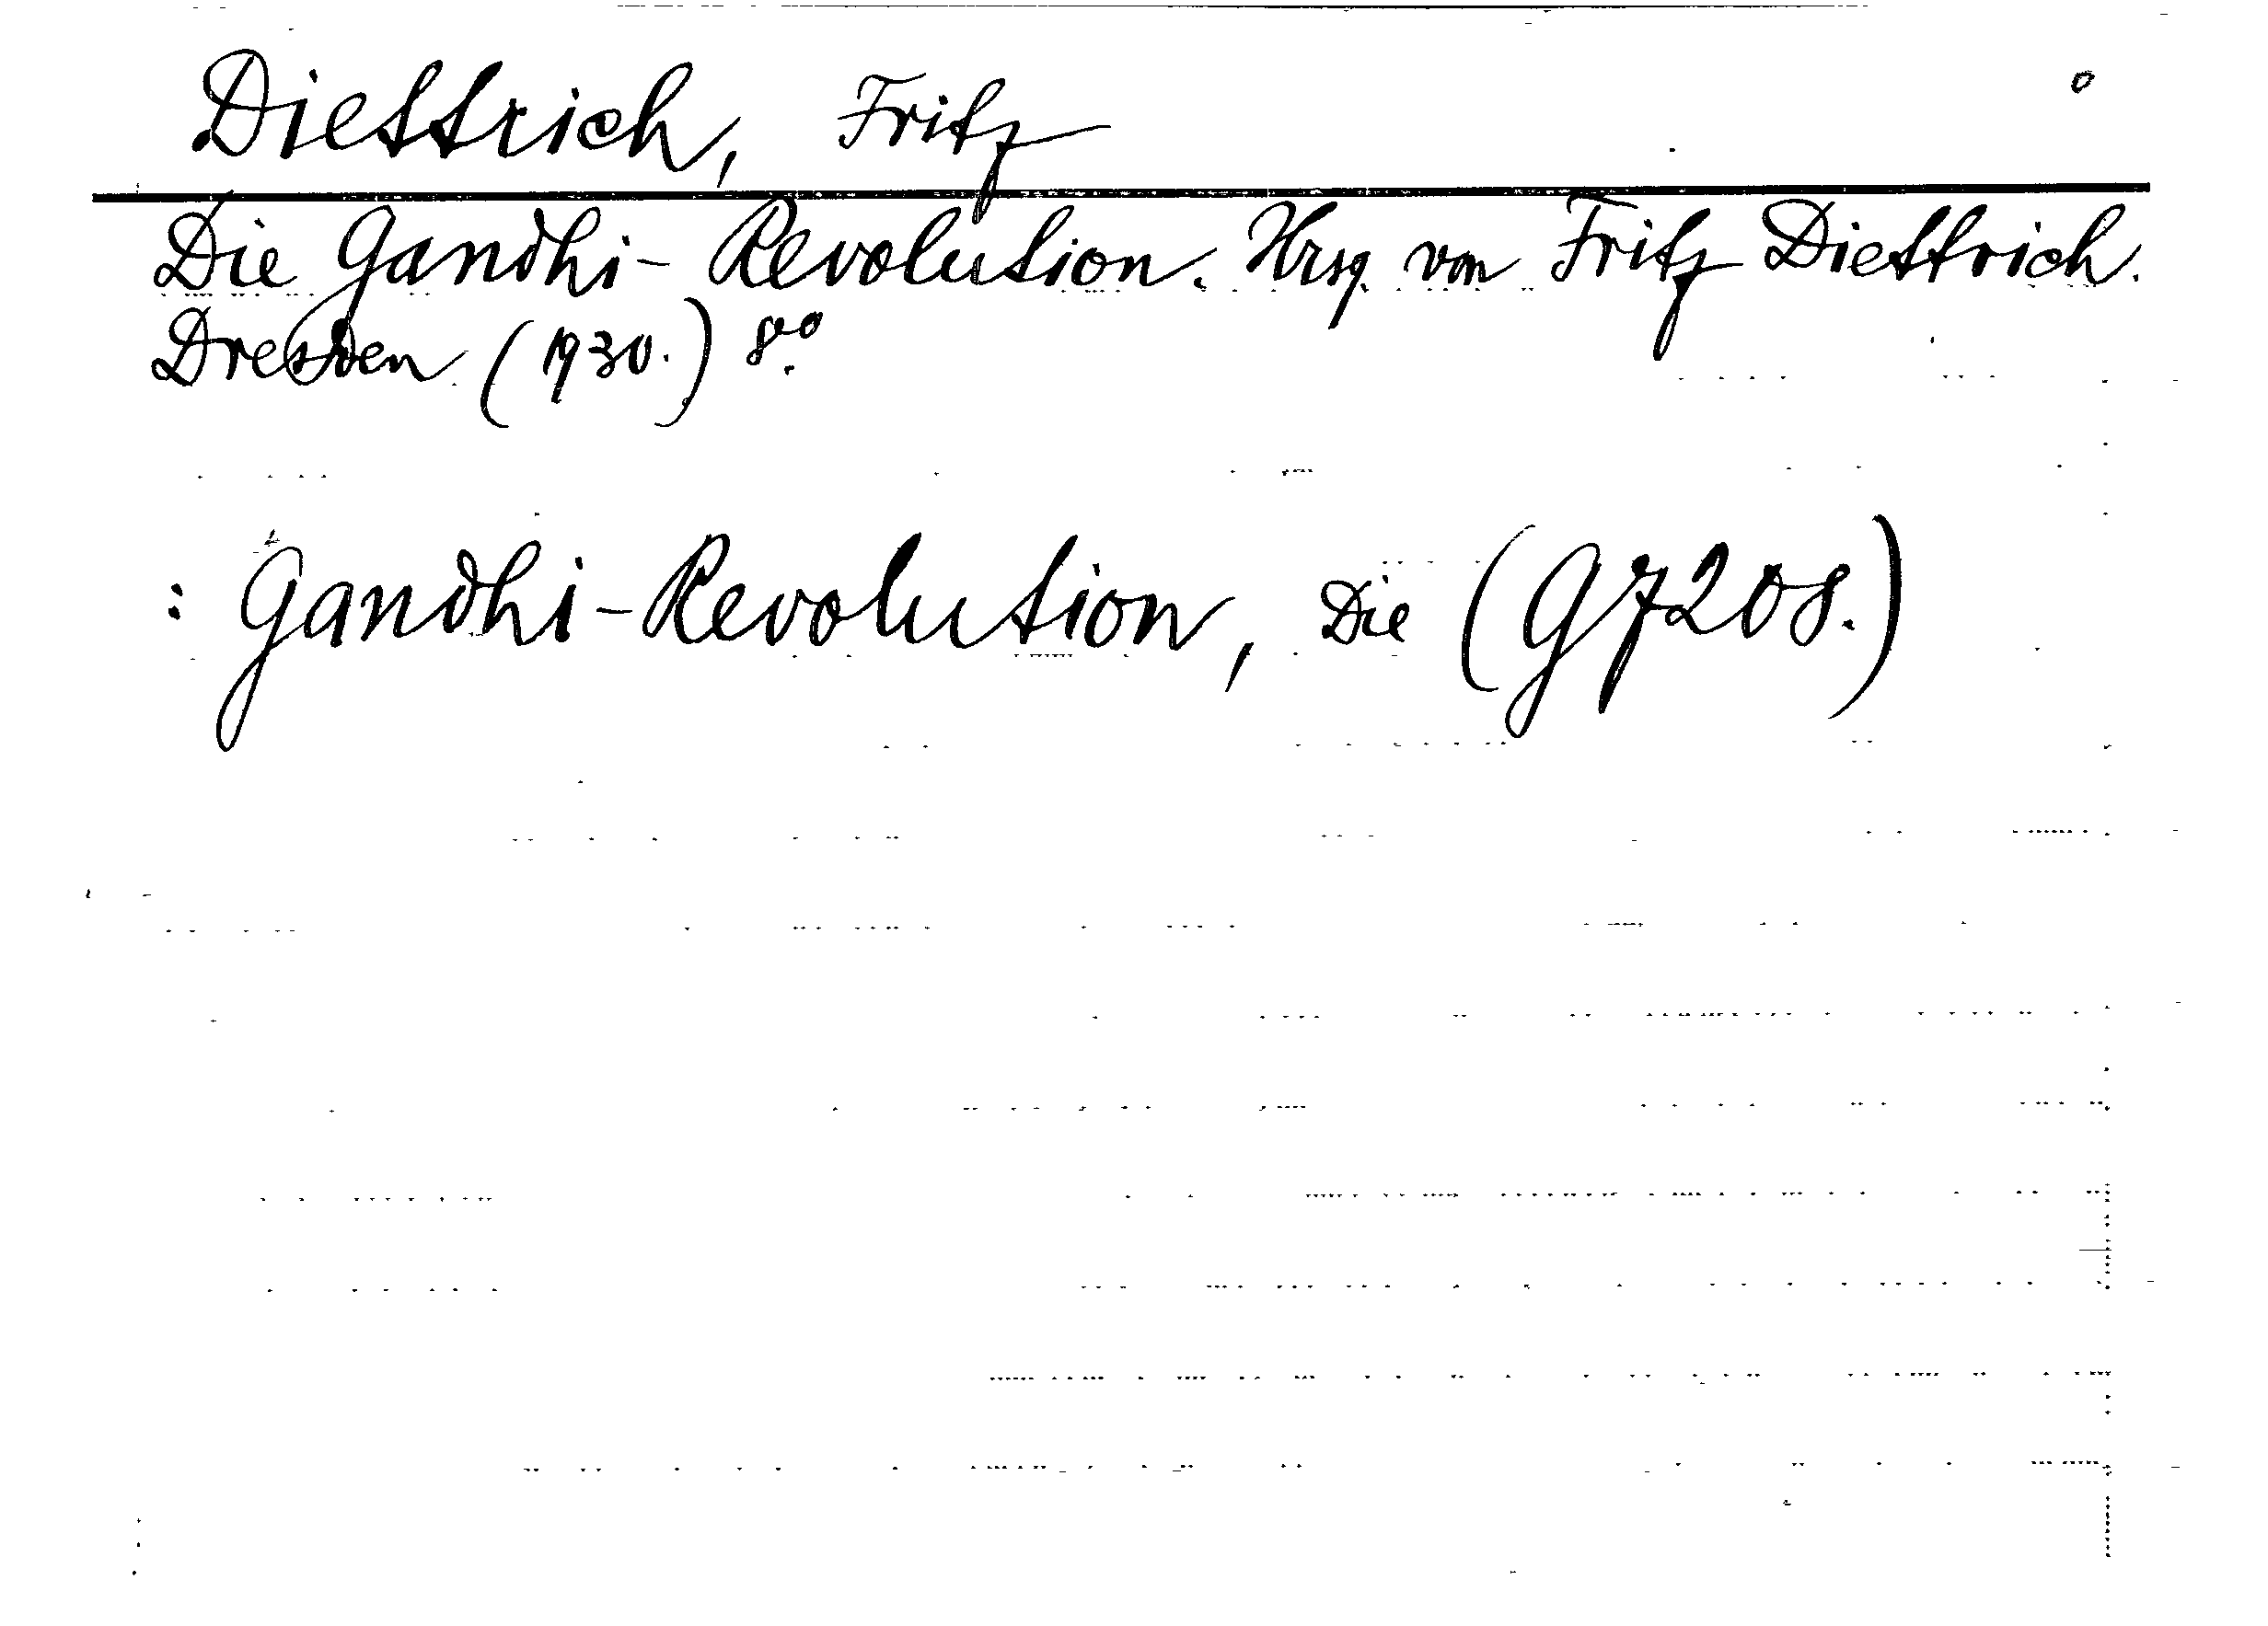 Diettrich, Fritz
Die Gandhi-Revolution. Hrsg. von Fritz Diettrich.
Dresden (1930.) 8vo.
: Gandhi-Revolution, Die (G7208.)